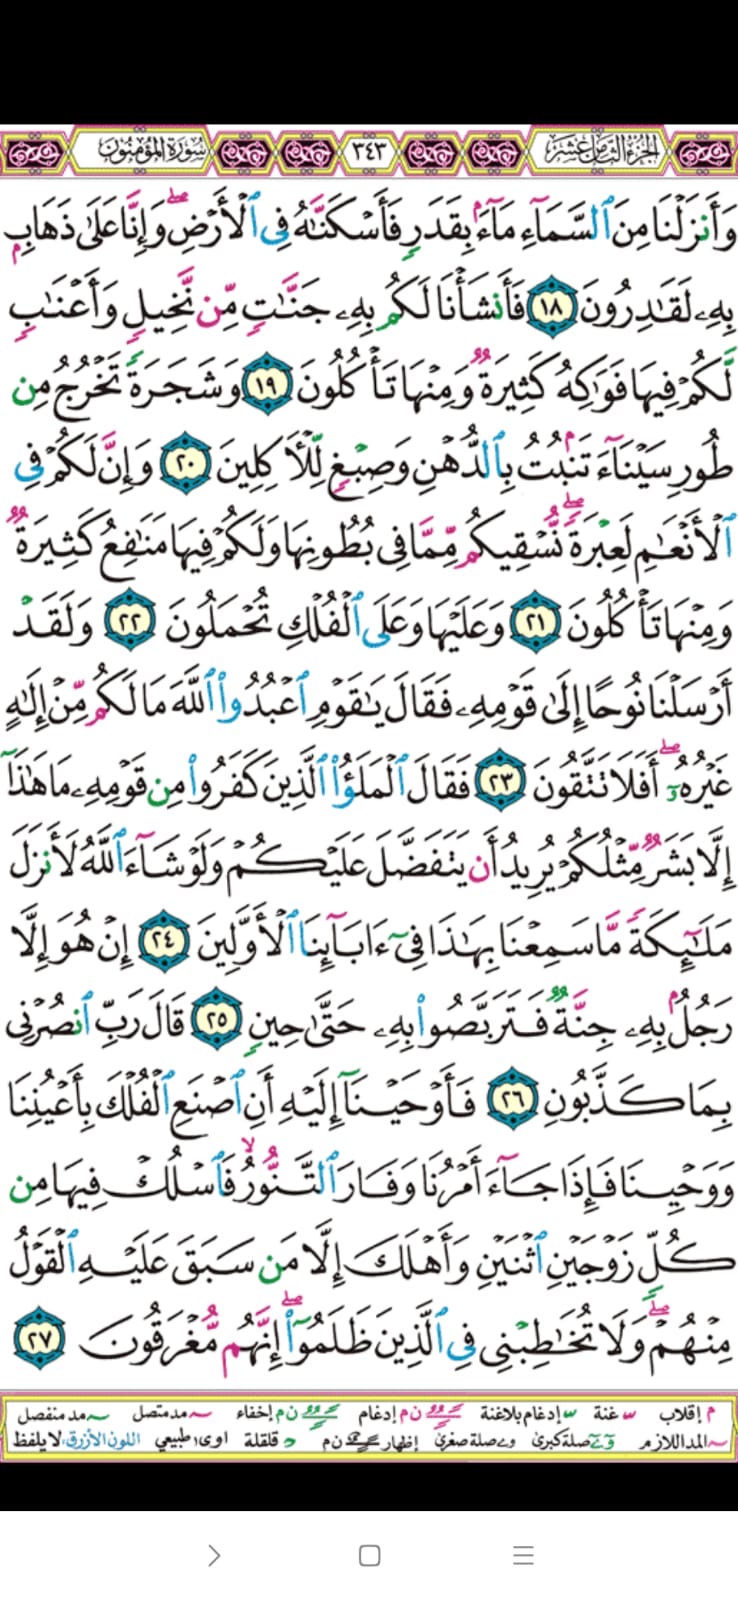 الجزء الثامن عشر ٣٤٣ سورة المؤمنون
وَأَنزَلْنَا مِنَ ٱلسَّمَآءِ مَآءَۢ بِقَدَرٍ فَأَسْكَنَّٰهُ فِى ٱلْأَرْضِۖ وَإِنَّا عَلَىٰ ذَهَابِۭ
بِهِۦ لَقَٰدِرُونَ ١٨ فَأَنشَأْنَا لَكُم بِهِۦ جَنَّٰتٍ مِّن نَّخِيلٍ وَأَعْنَٰبٍ
لَّكُمْ فِيهَا فَوَٰكِهُ كَثِيرَةٌ وَمِنْهَا تَأْكُلُونَ ١٩ وَشَجَرَةً تَخْرُجُ مِن
طُورِ سَيْنَآءَ تَنۢبُتُ بِٱلدُّهْنِ وَصِبْغٍ لِّلْـَٔاكِلِينَ ٢٠ وَإِنَّ لَكُمْ فِى
ٱلْأَنْعَٰمِ لَعِبْرَةًۖ نُّسْقِيكُم مِّمَّا فِى بُطُونِهَا وَلَكُمْ فِيهَا مَنَٰفِعُ كَثِيرَةٌ
وَمِنْهَا تَأْكُلُونَ ٢١ وَعَلَيْهَا وَعَلَى ٱلْفُلْكِ تُحْمَلُونَ ٢٢ وَلَقَدْ
أَرْسَلْنَا نُوحًا إِلَىٰ قَوْمِهِۦ فَقَالَ يَٰقَوْمِ ٱعْبُدُوا۟ ٱللَّهَ مَا لَكُم مِّنْ إِلَٰهٍ
غَيْرُهُۥٓۖ أَفَلَا تَتَّقُونَ ٢٣ فَقَالَ ٱلْمَلَؤُا۟ ٱلَّذِينَ كَفَرُوا۟ مِن قَوْمِهِۦ مَا هَٰذَآ
إِلَّا بَشَرٌ مِّثْلُكُمْ يُرِيدُ أَن يَتَفَضَّلَ عَلَيْكُمْ وَلَوْ شَآءَ ٱللَّهُ لَأَنزَلَ
مَلَٰٓئِكَةً مَّا سَمِعْنَا بِهَٰذَا فِىٓ ءَابَآئِنَا ٱلْأَوَّلِينَ ٢٤ إِنْ هُوَ إِلَّا
رَجُلٌۢ بِهِۦ جِنَّةٌ فَتَرَبَّصُوا۟ بِهِۦ حَتَّىٰ حِينٍ ٢٥ قَالَ رَبِّ ٱنصُرْنِى
بِمَا كَذَّبُونِ ٢٦ فَأَوْحَيْنَآ إِلَيْهِ أَنِ ٱصْنَعِ ٱلْفُلْكَ بِأَعْيُنِنَا
وَوَحْيِنَا فَإِذَا جَآءَ أَمْرُنَا وَفَارَ ٱلتَّنُّورُۙ فَٱسْلُكْ فِيهَا مِن
كُلٍّ زَوْجَيْنِ ٱثْنَيْنِ وَأَهْلَكَ إِلَّا مَن سَبَقَ عَلَيْهِ ٱلْقَوْلُ
مِنْهُمْۖ وَلَا تُخَٰطِبْنِى فِى ٱلَّذِينَ ظَلَمُوٓا۟ۖ إِنَّهُم مُّغْرَقُونَ ٢٧
م إقلاب غنة إدغام بلاغنة ن م إدغام ن م إخفاء مد متصل مد منفصل
المد اللازم صلة كبرى صلة صغرى إظهار ن م قلقلة اوى طبيعي اللون الأزرق: لا يلفظ